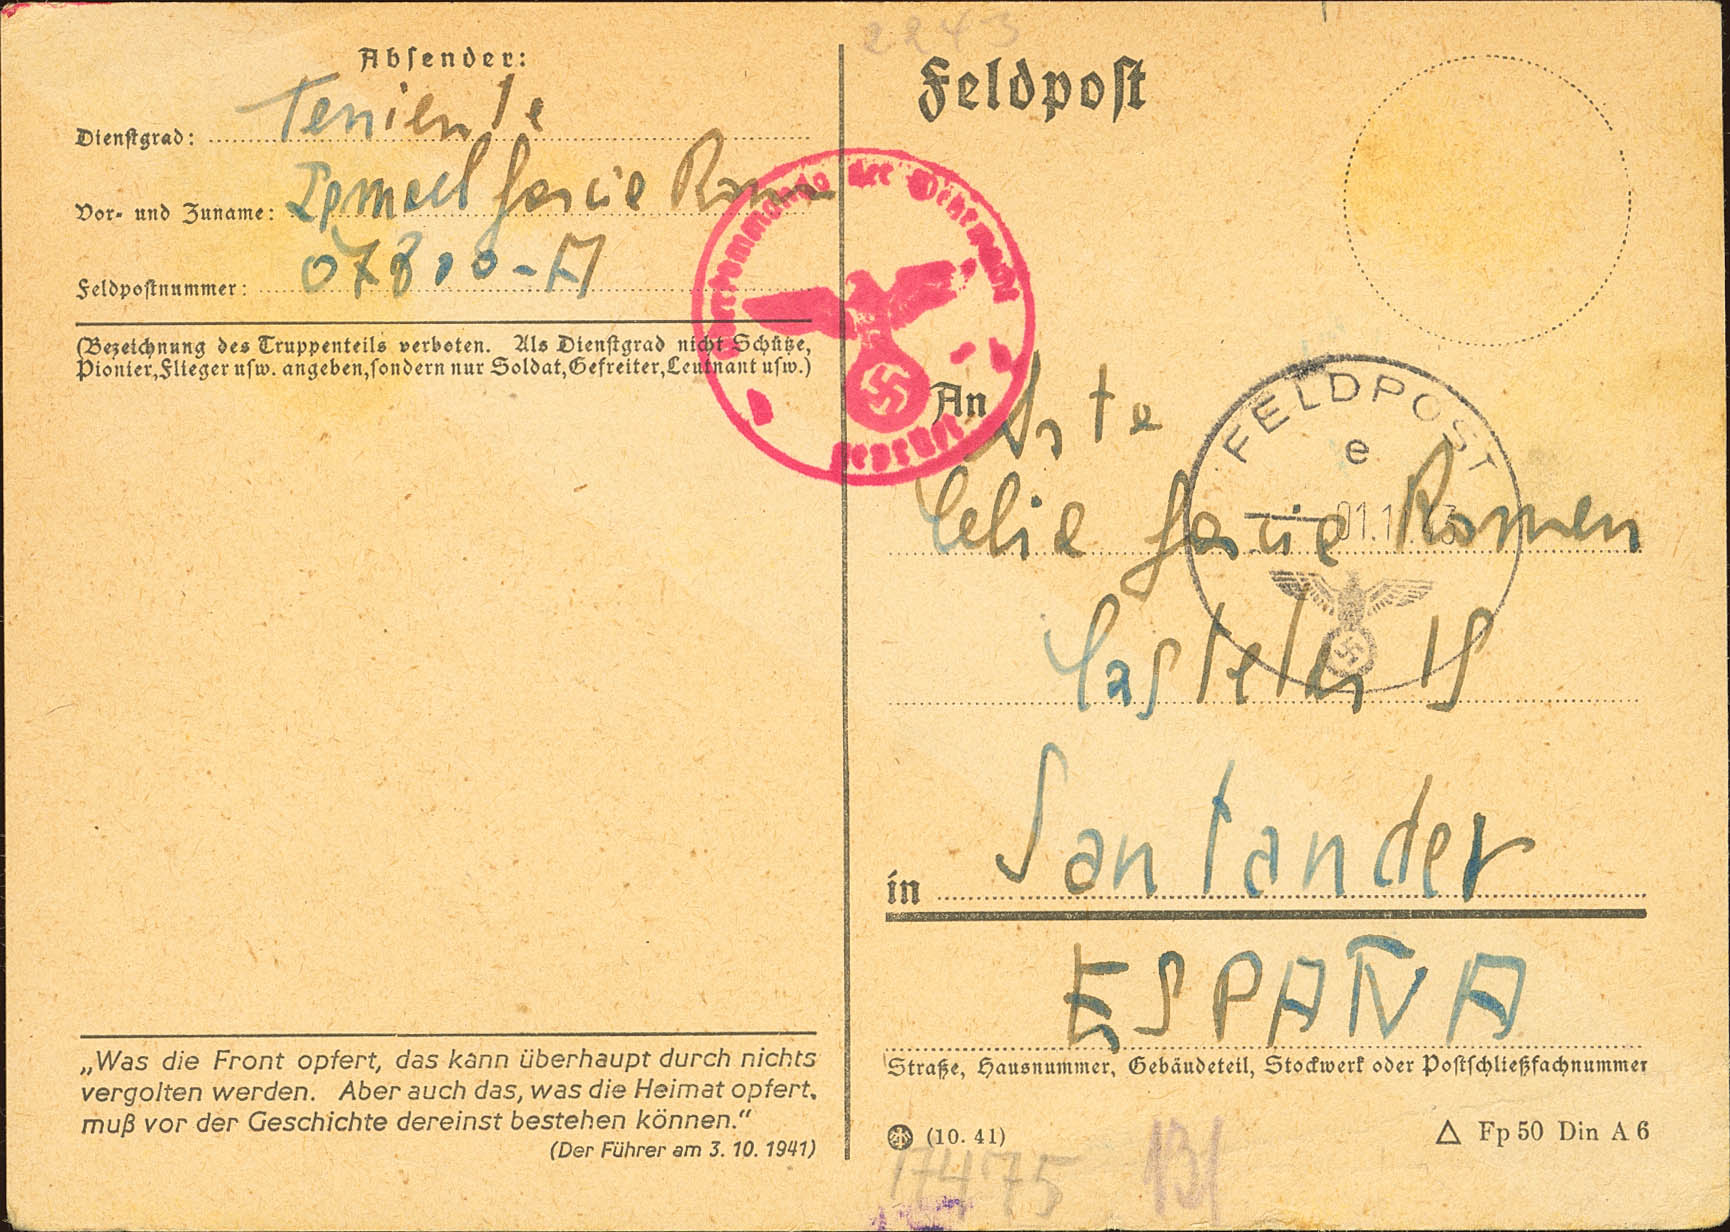 2243
Absender:
Dienstgrad: Teniente
Vor- und Zuname: Ismael Garcia Roman
Feldpostnummer: 07800-A
(Bezeichnung des Truppenteils verboten. Als Dienstgrad nicht Schütze,
Pionier, Flieger usw. angeben, sondern nur Soldat, Gefreiter, Leutnant usw.)
Oberkommando der Wehrmacht
geprüft
Feldpost
FELDPOST
e
An Srta
Celia Garcia Roman
Castelar 15
in Santander
ESPAÑA
Straße, Hausnummer, Gebäudeteil, Stockwerk oder Postschließfachnummer
„Was die Front opfert, das kann überhaupt durch nichts
vergolten werden. Aber auch das, was die Heimat opfert,
muß vor der Geschichte dereinst bestehen können.“
(Der Führer am 3. 10. 1941)
(10. 41)
Fp 50 Din A 6
17475 131